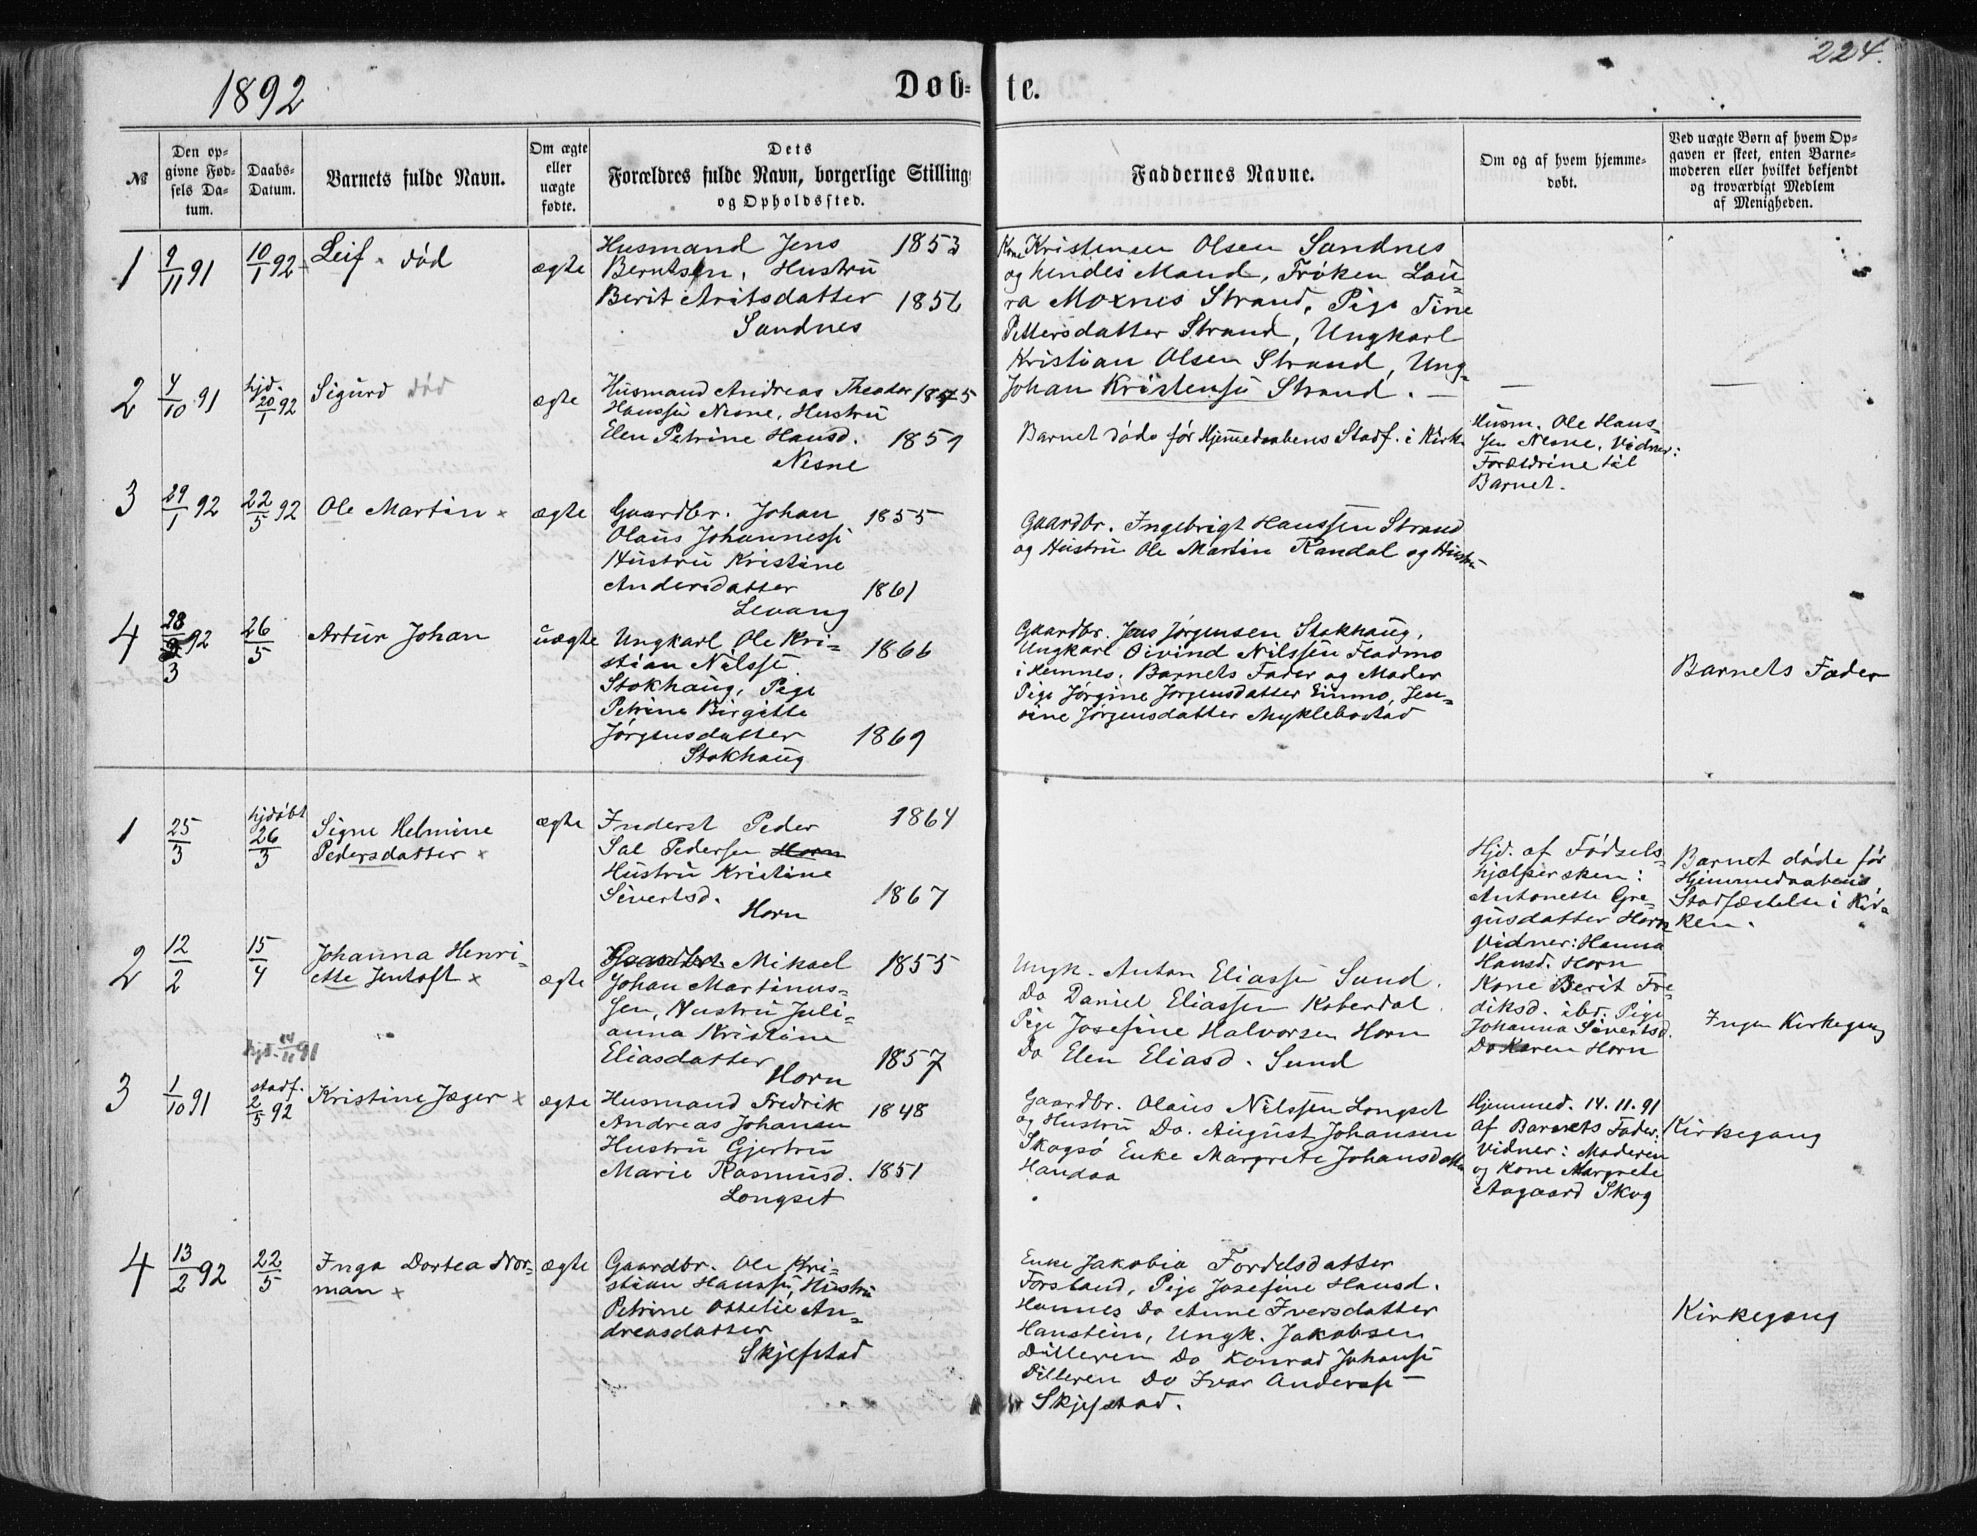 224.
1892
Døb-
te.
№
Den op-
givne Fød-
sels Da-
tum.
Daabs-
Datum.
Barnets fulde Navn.
Om ægte
eller
uægte
fødte.
Dets
Forældres fulde Navn, borgerlige Stilling
og Opholdssted.
Faddernes Navne.
Om og af hvem hjemme-
døbt.
Ved uægte Børn af hvem Op-
gaven er skeet, enten Barne-
moderen eller hvilket bekjendt
og troværdigt Medlem
af Menigheden.
1
9/11 91
10/1 92
Leif død
ægte
Husmand Jens 1853
Berntsen, Hustru
Berit Aritsdatter 1856
Sandnes
Kone Kristensen Olsen Sandnes
og hendes Mand, Frøken Lau-
ra Moxnes Strand, Pige Tine
Pettersdatter Strand, Ungkarl
Kristian Olsen Strand, Ung-
Johan Kristensen Strand. —
2
4/10 91
hjd.
20/1 92
Sigurd død
ægte
Husmand Andreas Theodor 1845
Hanssen Nesne, Hustru
Elen Petrine Hansd. 1857
Nesne
Barnet døde før Hjemmedaabens Stadf. i Kirk
—
Husm. Ole Hans-
sen Nesne, Vidner:
Forældrene til
Barnet.
—
3
29/1 92
22/5 92
Ole Martin x
ægte
Gaardbr. Johan 1855
Olaus Johannesse
Hustru Kristine
Andersdatter 1861
Levang
Gaardbr. Ingebrigt Hanssen Strand
og Hustru Ole Martin Randal og Hustru
4
28/3 92
26/5
Artur Johan
uægte
Ungkarl Ole Kri- 1866
stian Nilsse
Stokhaug, Pige
Petrine Birgitte
Jørgensdatter 1869
Stokhaug
Gaardbr. Jens Jørgensen Stokhaug,
Ungkarl Øivind Nilssen Fladmo
i Hemnes, Barnets Fader og Moder
Pige Jørgine Jørgensdatter Einmo, Jen-
sine Jørgensdatter Myklebostad
Barnets Fader
1
25/3
hjdøbt
26/3
Signe Helmine
Pedersdatter x
ægte
Inderst Peder 1864
Sal Pedersen Horn
Hustru Kristine
Sivertsd. 1867
Horn
Hjd. af Fødsels-
hjælpersken:
Antonette Gre-
gusdatter Horn
Vidner: Hanna
Hansd. Horn
Kone Berit Fre-
diksd. ibd. Pige
Johanna Sivertsd.
Do Karen Horn
Barnet døde før
Hjemmedaabens
Stadfæstelse i Kir-
ken.
2
12/2
15/4
Johanna Henri-
ette Jentoft x
ægte
Gaardbr. Mikael 1855
Johan Martinus-
sen, Hustru Juli-
anna Kristine
Eliasdatter 1857
Horn
Ungk. Anton Eliassen Sund.
Do Daniel Eliassen Koberdal.
Pige Josefine Halvorsen Horn
Do Elen Eliasd. Sund
Ingen Kirkegang
3
1/10 91
Hjd. 14/11 91
stadf.
2/5 92
Kristine Jæger x
ægte
Husmand Fredrik 1848
Andreas Johansen
Hustru Gjertru
Marie Rasmusd. 1851
Longset
Gaardbr. Olaus Nilssen Longset
og Hustru Do. August Johansen
Skogsø Enke Margrete Johansdatter
Handaa
Hjemmed. 14.11.91
af Barnets Fader.
Vidner: Moderen
og Kone Margrete
Aagaard Skog
Kirkegang
4
13/2 92
22/5
Inga Dortea Nor-
man x
ægte
Gaardbr. Ole Kri-
stian Hanssen, Hustru
Petrine Ottelie An-
dreasdatter
Skjefstad
Enke Jakobia Fordelsdatter
Forsland, Pige Josefine Hansd.
Hannes Do Anne Iversdatter
Hanstein, Ungk. Jakobsen
Dilleren Do Konrad Johanse
Dilleren Do Ivar Anderse —
Skjefstad.
Kirkegang